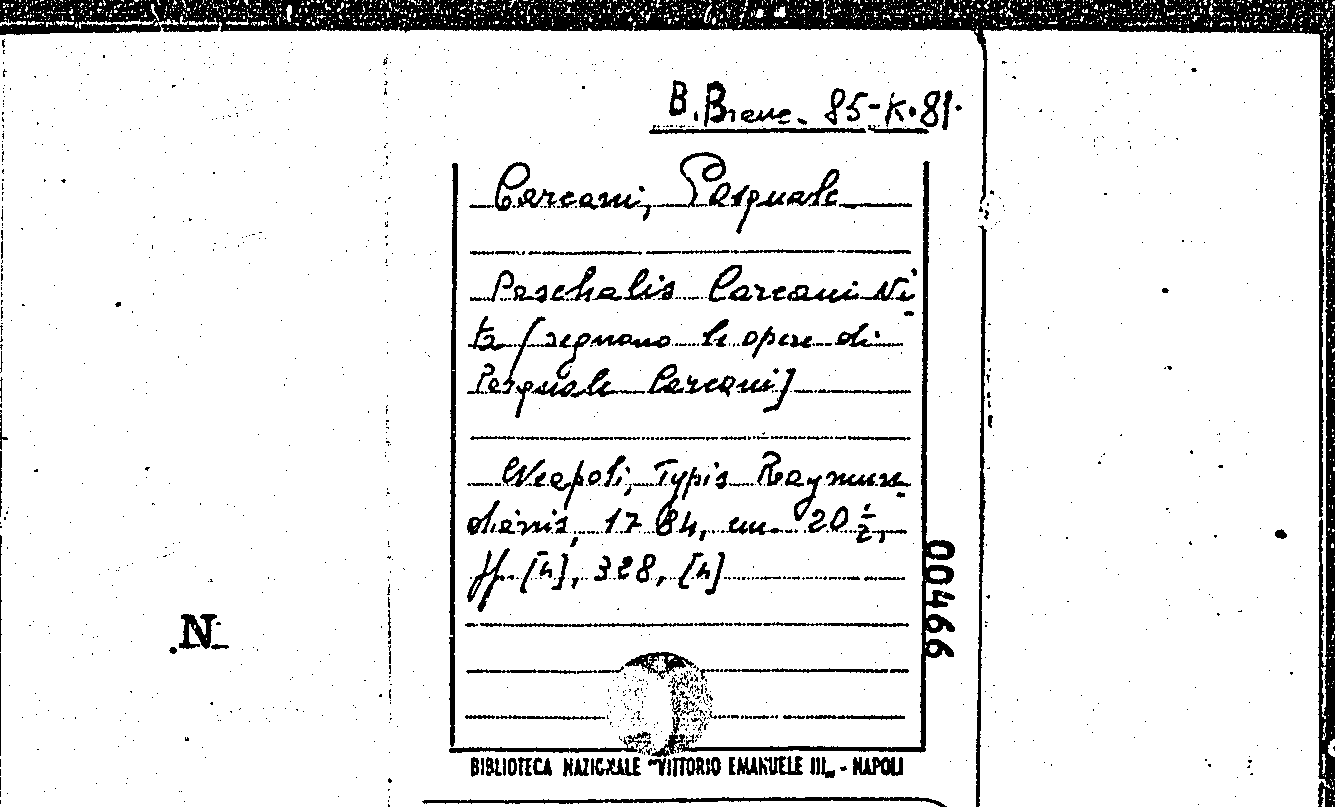 B. Branc. 85-K.81.
Carcani, Pasquale
Paschalis Carcani Vi
ta [segnano le opere di
Pasquale Carcani]
Neapoli, Typis Raymun-
dianis, 1784, cm. 20½,
ff. [4], 328, [4]
00466
.N
BIBLIOTECA NAZIONALE "VITTORIO EMANUELE III" - NAPOLI